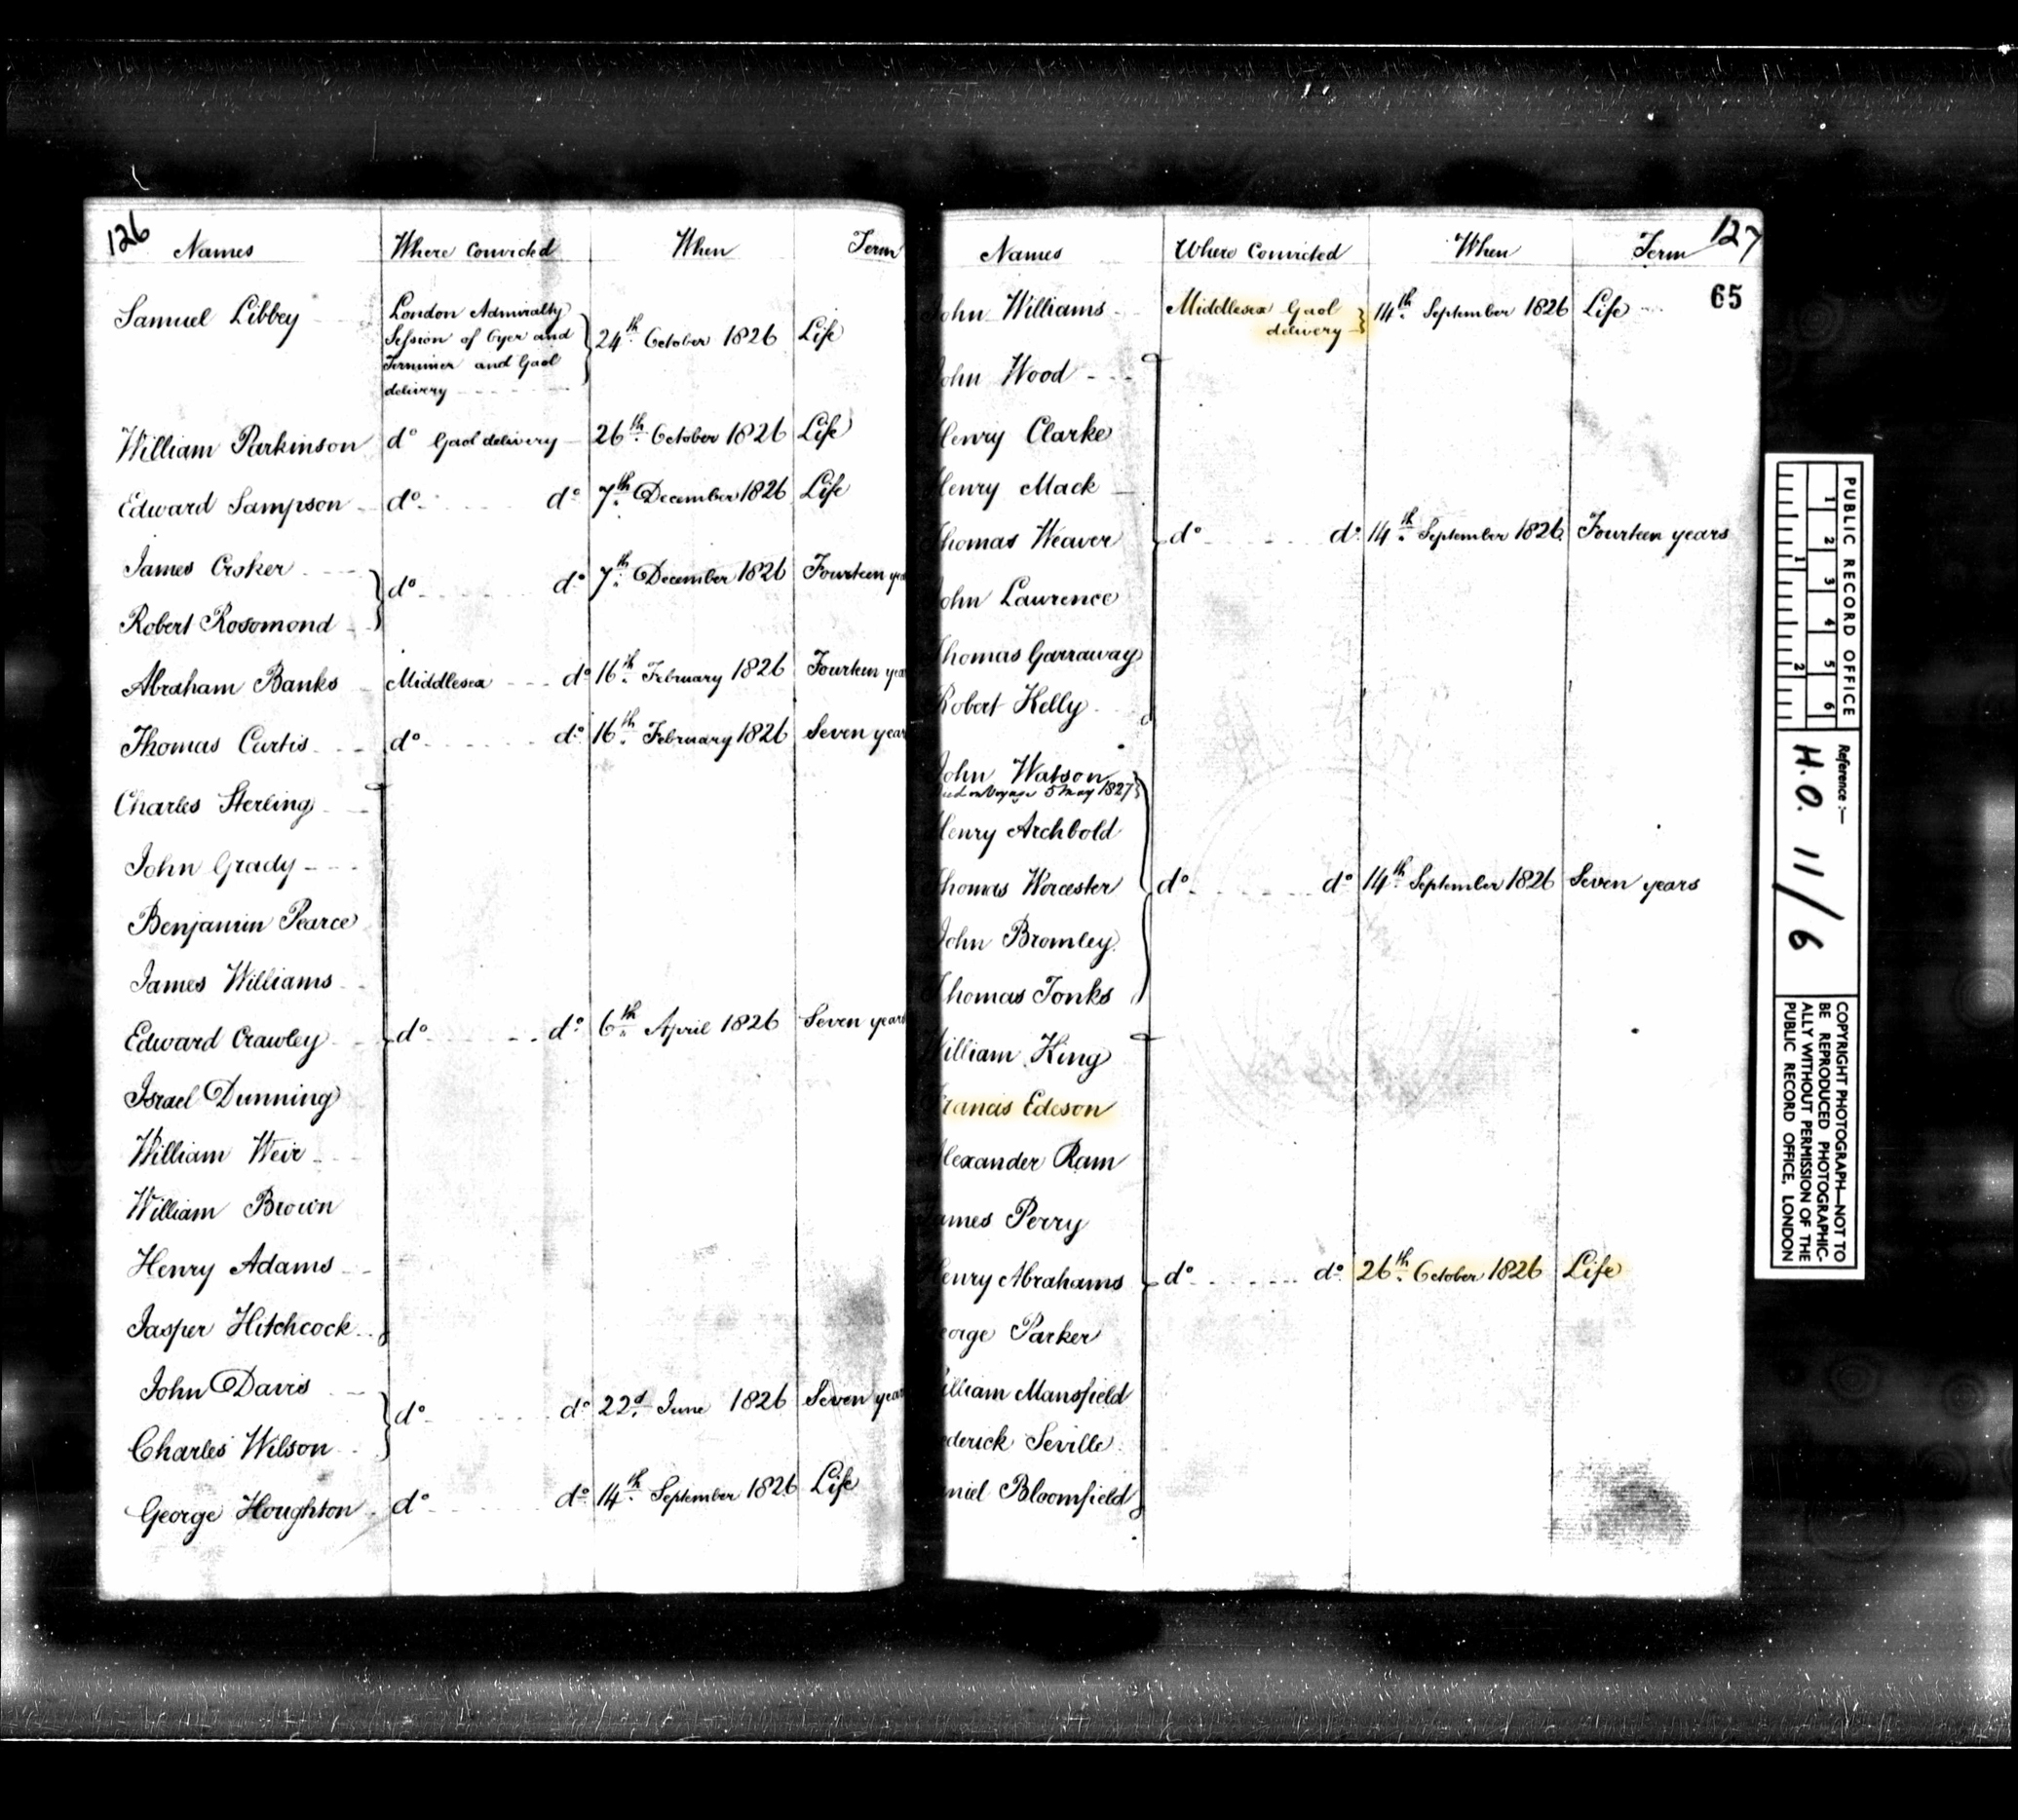 126
Names Where Convicted When Term
Samuel Libbey London Admiralty
Session of Oyer and
Terminer and Gaol
delivery } 24th October 1826 Life
William Parkinson do Gaol delivery 26th October 1826 Life
Edward Sampson do do 7th December 1826 Life
James Croker
Robert Rosomond } do do 7th December 1826 Fourteen yea
Abraham Banks Middlesex do 16th February 1826 Fourteen yea
Thomas Curtis do do 16th February 1826 Seven year
Charles Sterling
John Grady
Benjamin Pearce
James Williams
Edward Crawley do do 6th April 1826 Seven years
Israel Dunning
William Weir
William Brown
Henry Adams
Jasper Hitchcock
John Davis
Charles Wilson } do do 22d June 1826 Seven year
George Houghton do do 14th September 1826 Life
127
Names Where Convicted When Term
65
John Williams Middlesex Gaol
delivery } 14th September 1826 Life
John Wood
Henry Clarke
Henry Mack
Thomas Weaver do do 14th September 1826 Fourteen years
John Laurence
Thomas Garraway
Robert Kelly
John Watson
ied on Voyage 5 May 1827
Henry Archbold
Thomas Worcester do do 14th September 1826 Seven years
John Bromley
Thomas Tonks
William King
Francis Edeson
Alexander Ram
James Perry
Henry Abrahams do do 26th October 1826 Life
eorge Parker
illiam Mansfield
ederick Seville
niel Bloomfield
PUBLIC RECORD OFFICE
1 2 3 4 5 6
1 2
Reference :-
H.O. 11/6
COPYRIGHT PHOTOGRAPH—NOT TO
BE REPRODUCED PHOTOGRAPHIC-
ALLY WITHOUT PERMISSION OF THE
PUBLIC RECORD OFFICE, LONDON